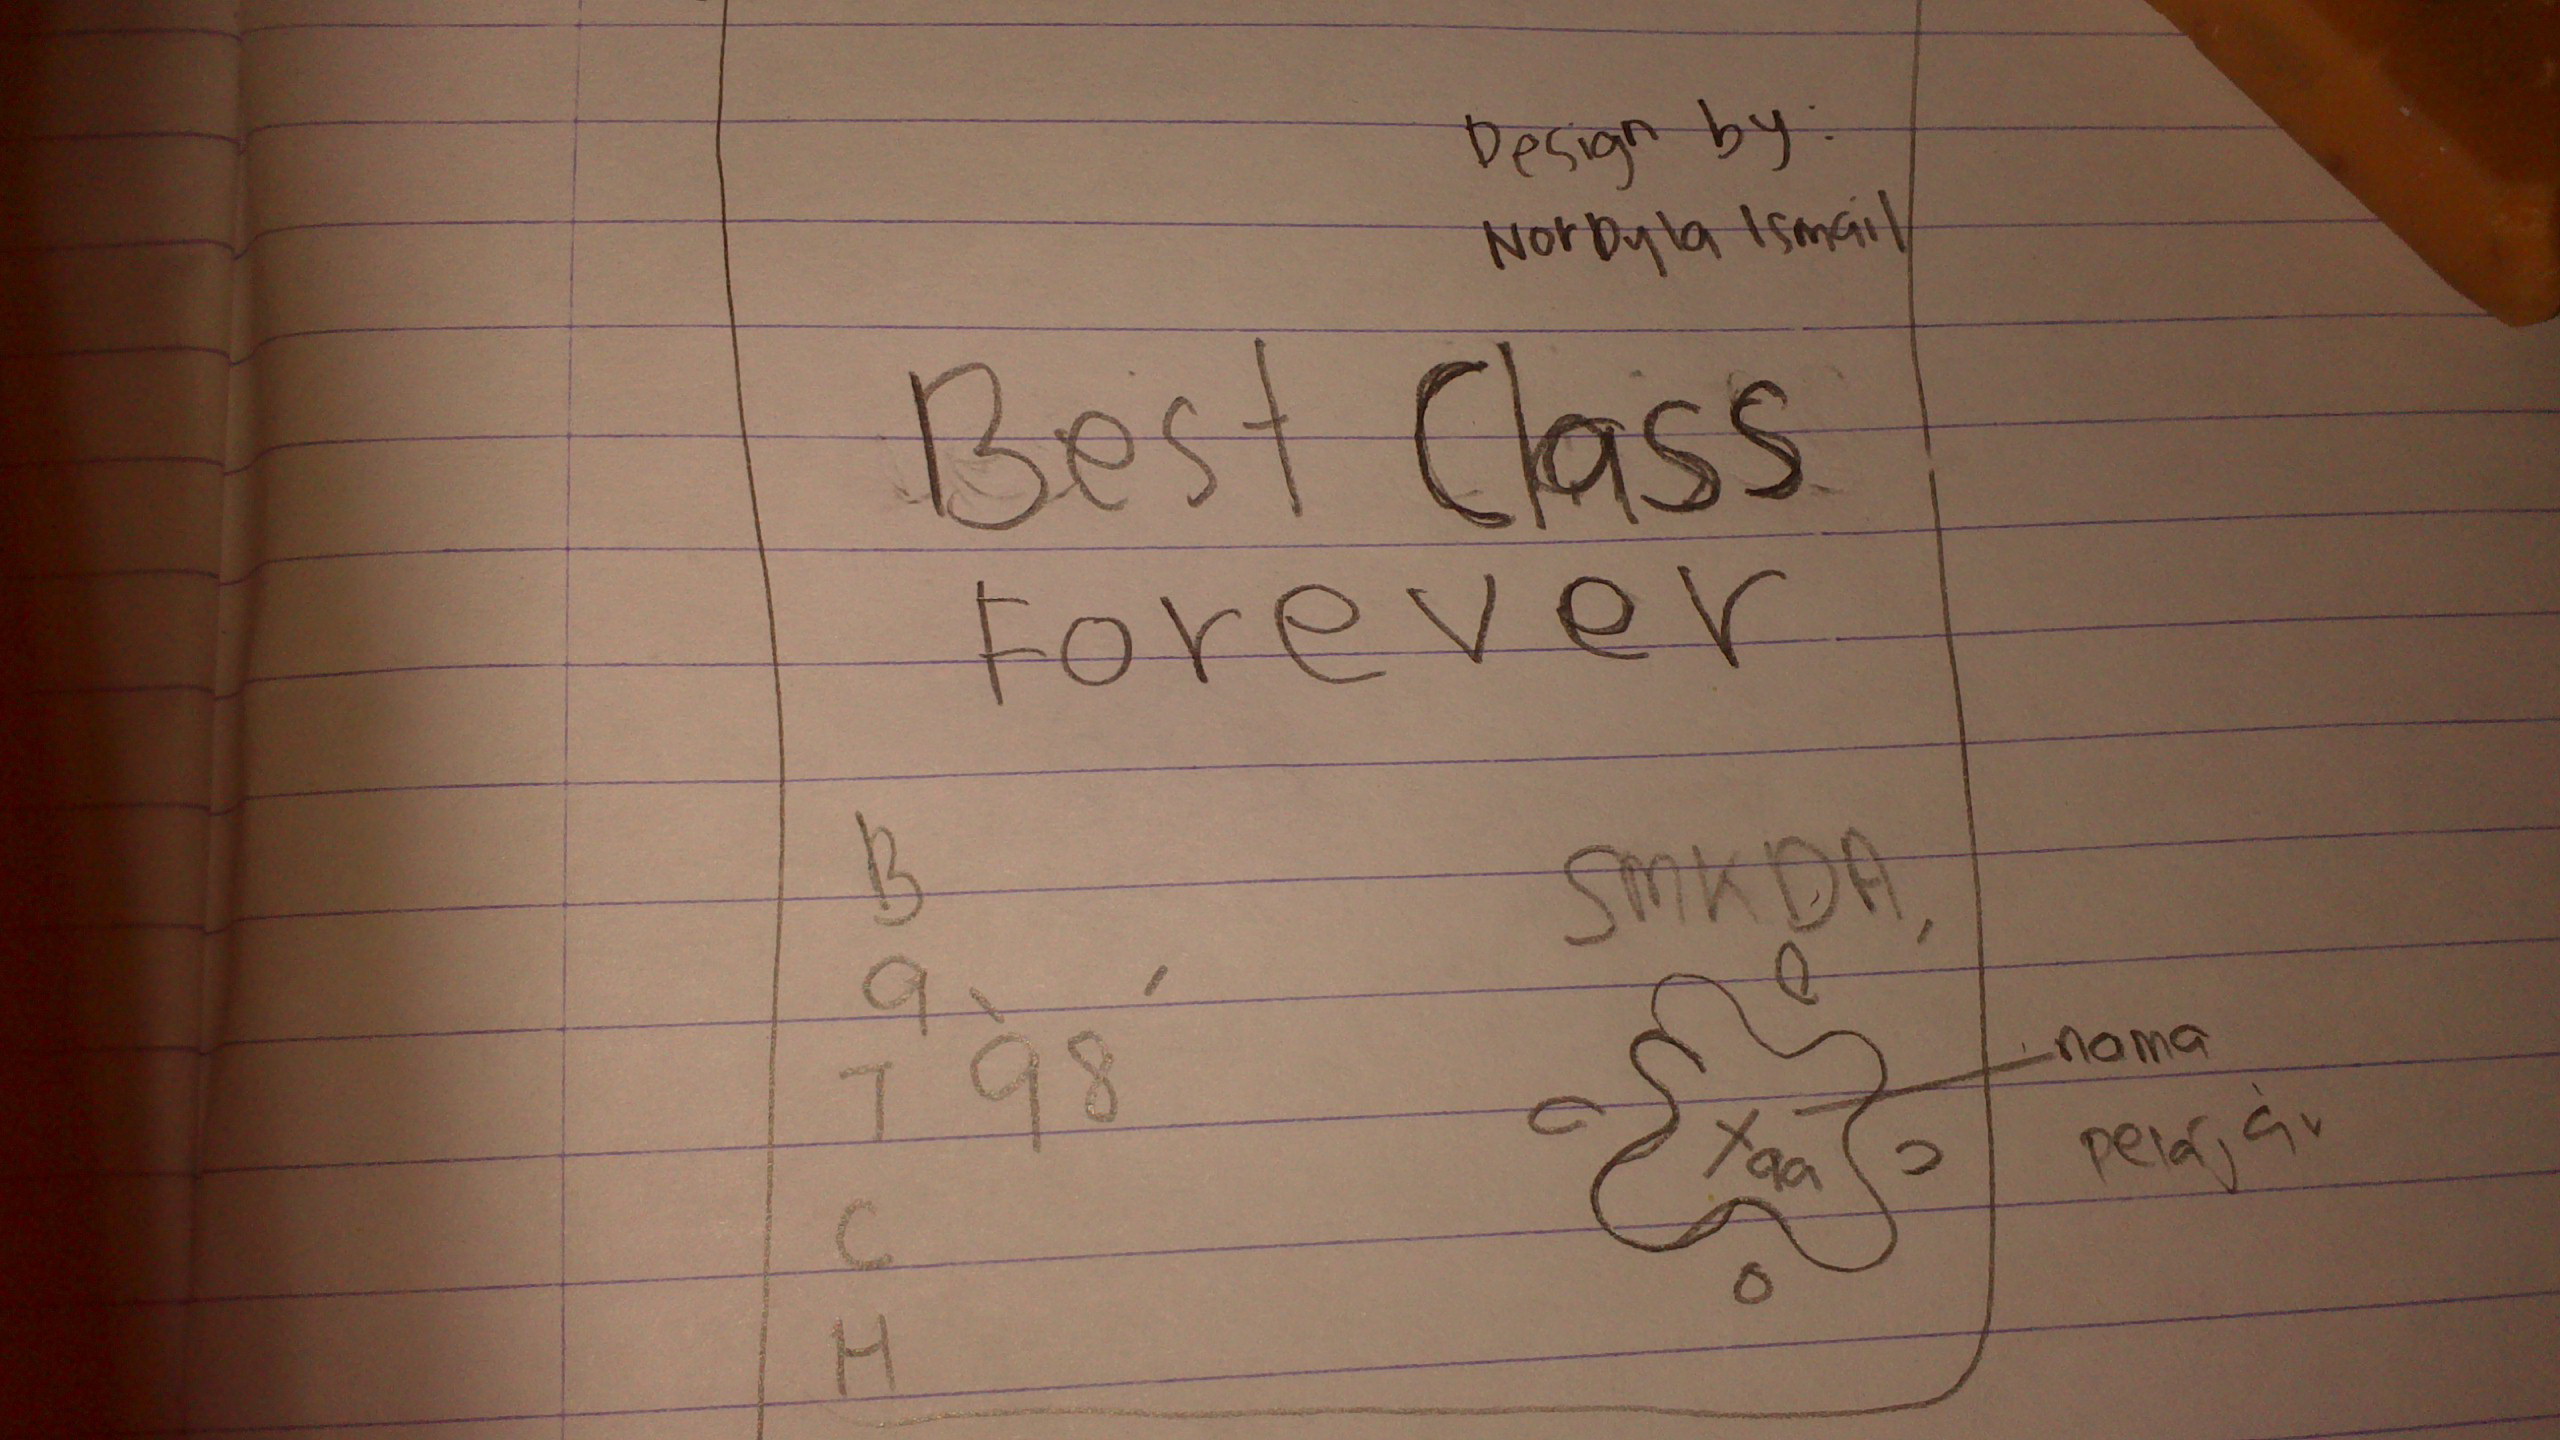 Design by:
NorDyla Ismail
Best Class
Forever
B
a
T
C
H
98
SMKDA,
nama
pelajar